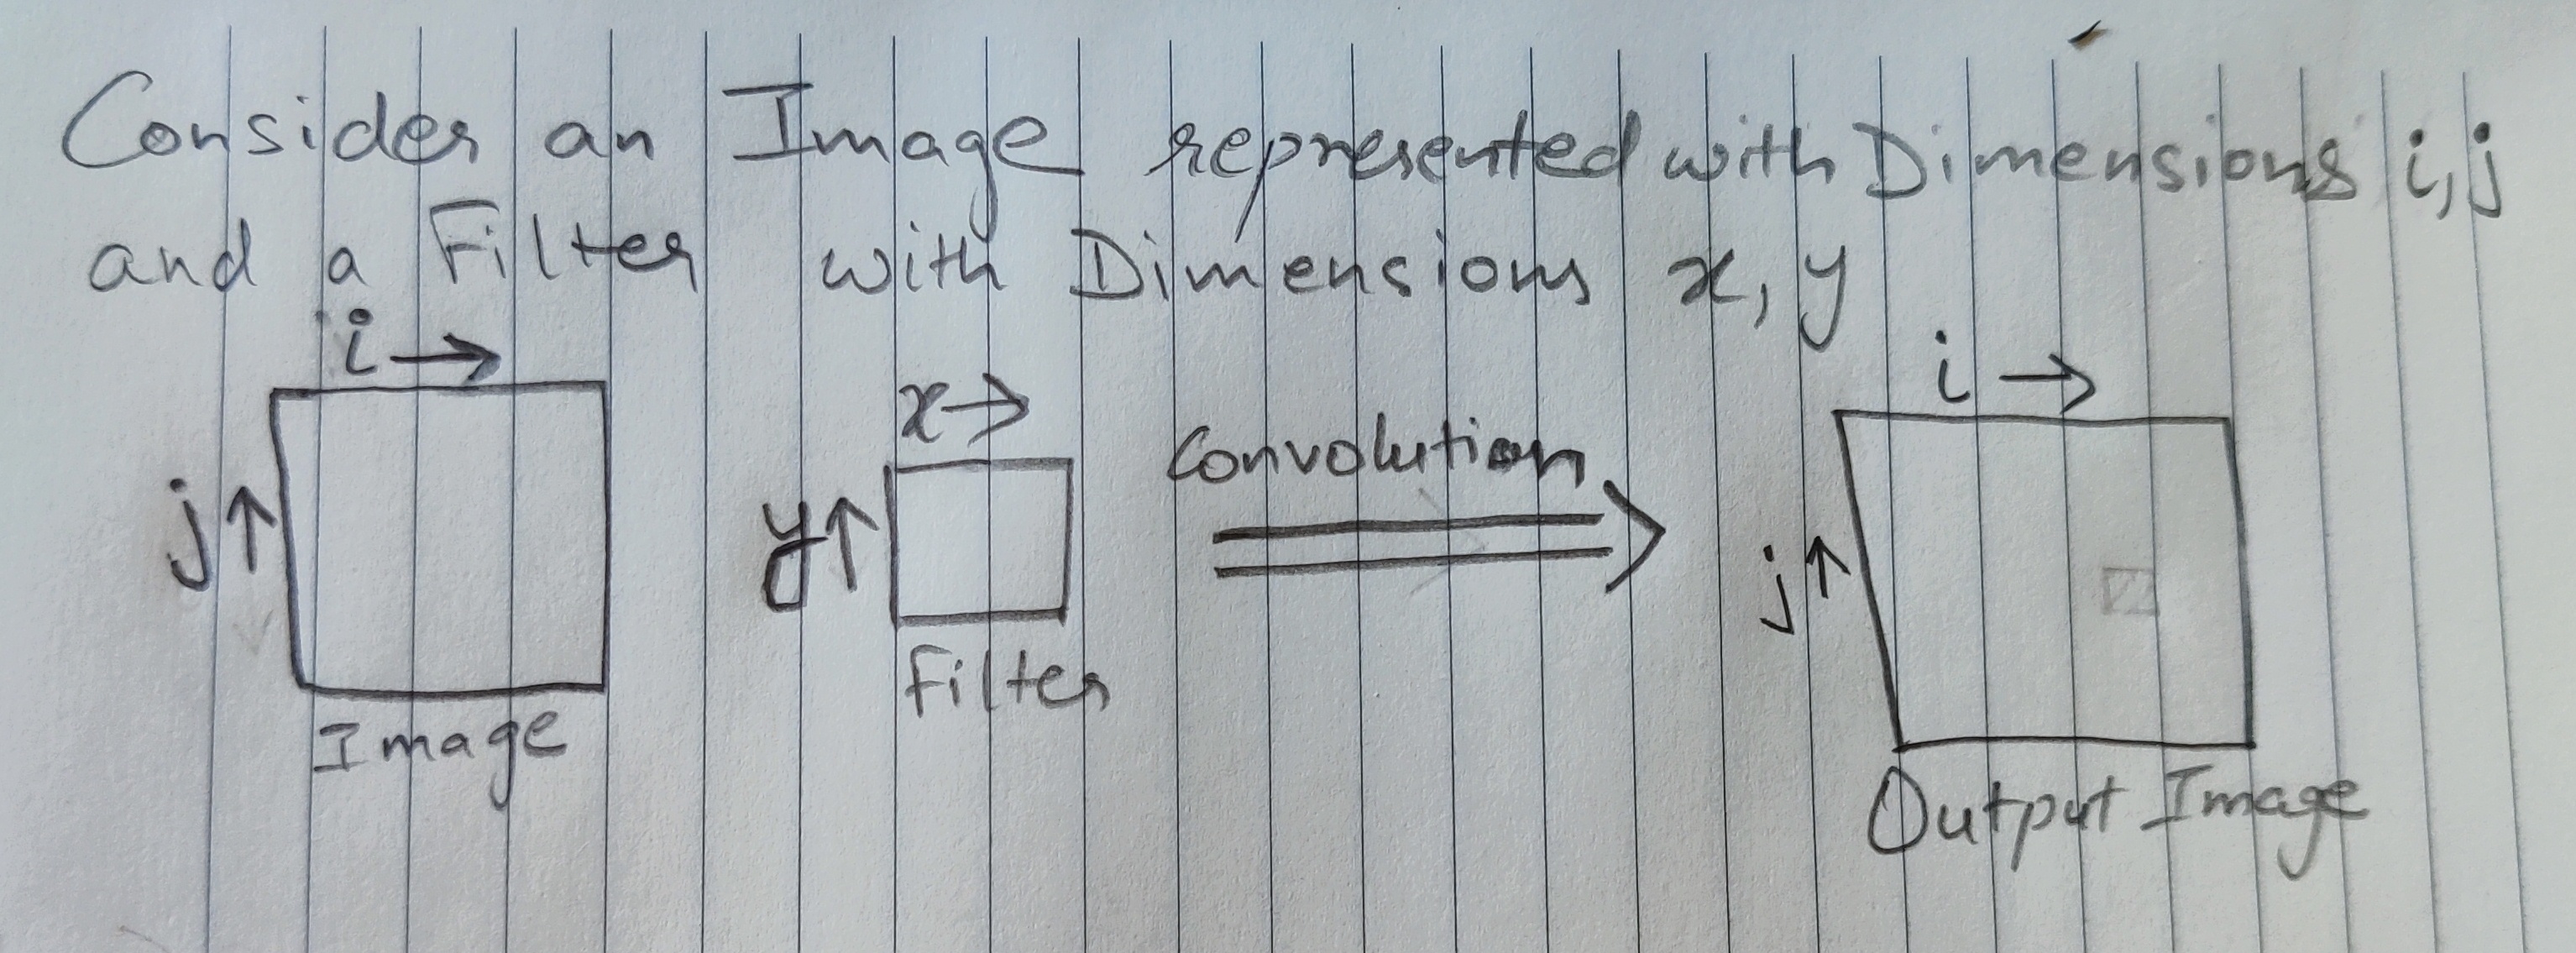 Consider an Image represented with Dimensions i, j
and a Filter with Dimensions x, y
i →
j ↑
Image
x →
y ↑
Filter
Convolution
i →
j ↑
Output Image